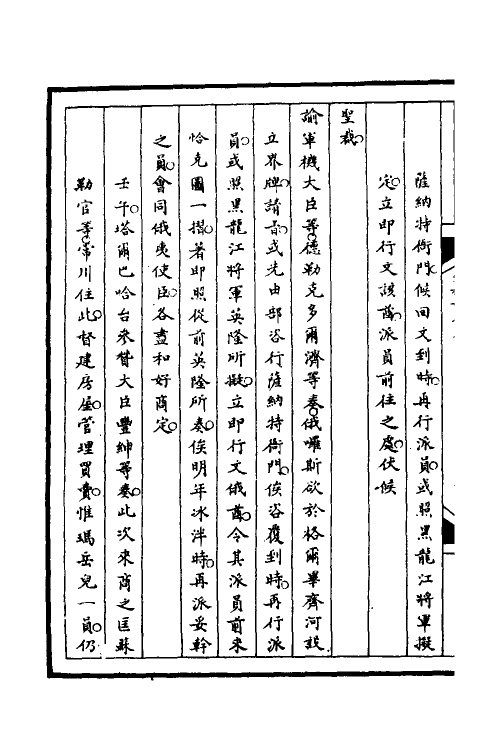 薩納特衙門候回文到時再行派員或照黑龍江將軍擬
定立即行文該酋派員前往之處伏候
聖裁
諭軍機大臣等德勒克多爾濟等奏俄囉斯欲於格爾畢齊河設
立界牌請旨或先由部咨行薩納特衙門俟咨覆到時再行派
員或照黑龍江將軍英隆所擬立即行文俄酋令其派員前來
恰克圖一摺著即照從前英隆所奏俟明年冰泮時再派妥幹
之員會同俄夷使臣各盡和好商定
壬午塔爾巴哈台參贊大臣豐紳等奏此次來商之匡蘇
勒官等常川住此督建房屋管理買賣惟瑪岳兒一員仍